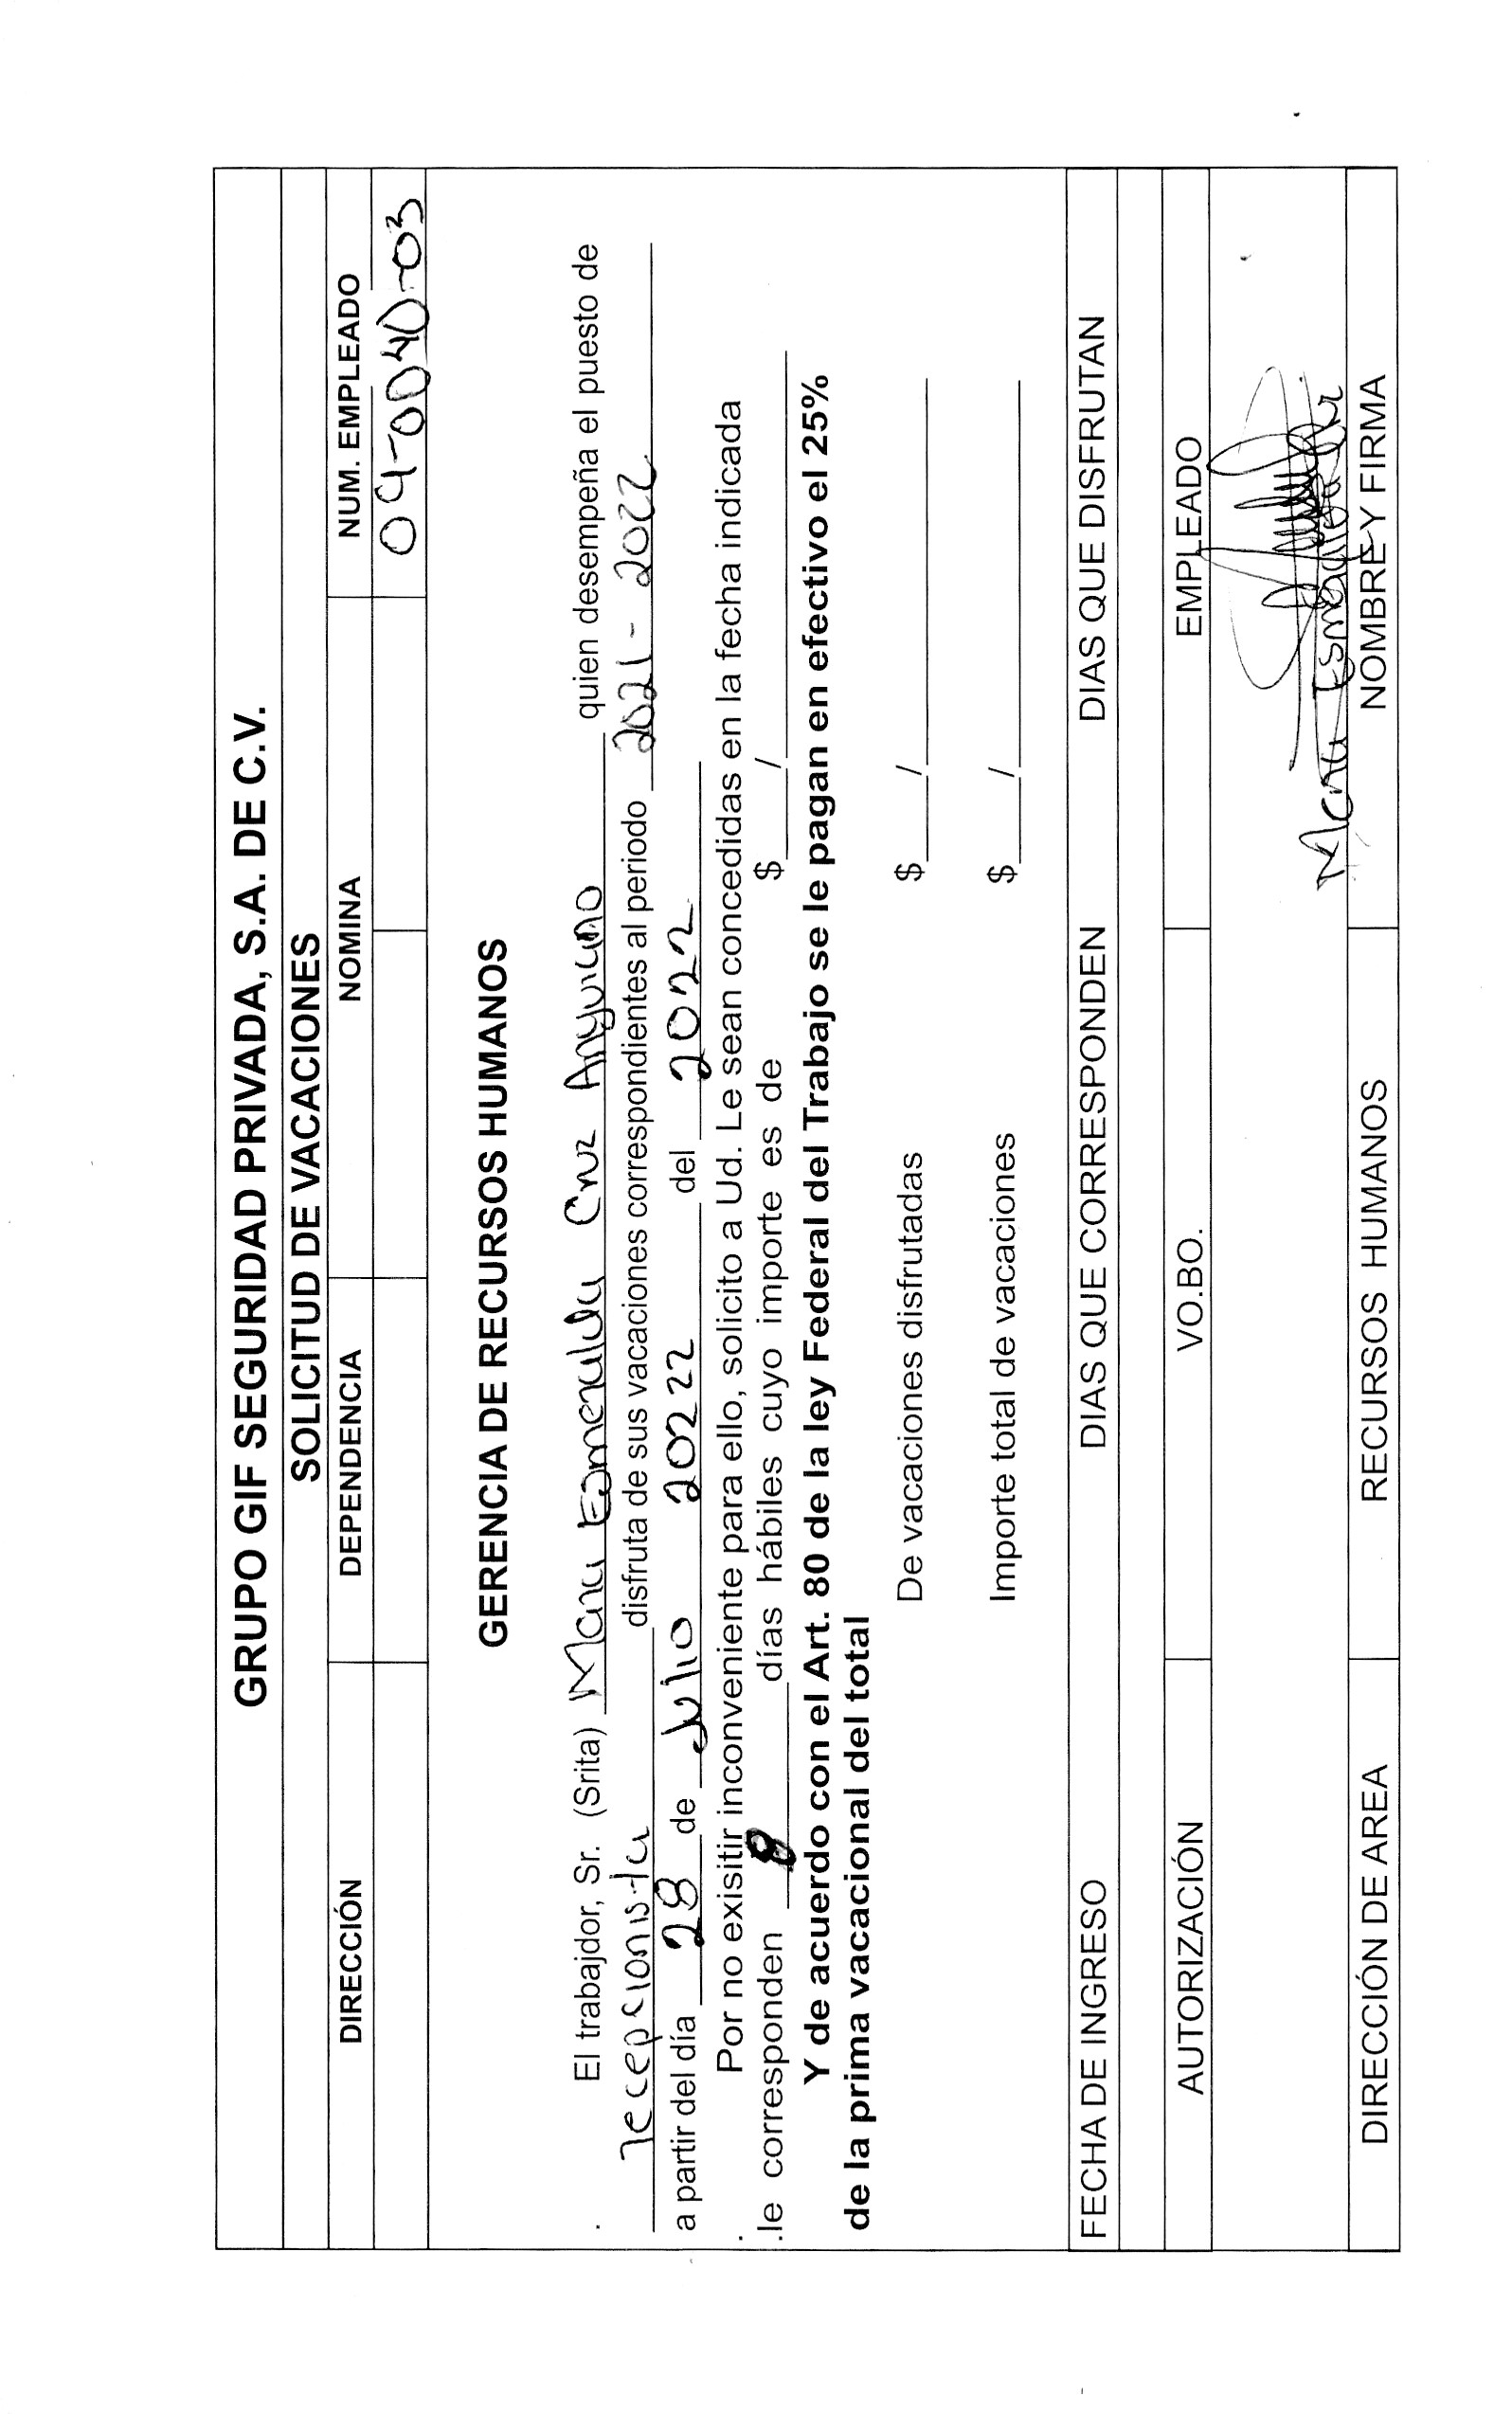 GRUPO GIF SEGURIDAD PRIVADA, S.A. DE C.V.
SOLICITUD DE VACACIONES
DIRECCIÓN DEPENDENCIA NOMINA NUM. EMPLEADO
09-0040-03
GERENCIA DE RECURSOS HUMANOS
. El trabajdor, Sr. (Srita) Maria Esmeralda Cruz Anguiano quien desempeña el puesto de
recepcionista disfruta de sus vacaciones correspondientes al periodo 2021 - 2022
a partir del día 28 de Julio 20222 del 2022
. Por no exisitir inconveniente para ello, solicito a Ud. Le sean concedidas en la fecha indicada
.le corresponden 8 días hábiles cuyo importe es de $____/____
Y de acuerdo con el Art. 80 de la ley Federal del Trabajo se le pagan en efectivo el 25%
de la prima vacacional del total
De vacaciones disfrutadas $____/____
Importe total de vacaciones $____/____
FECHA DE INGRESO DIAS QUE CORRESPONDEN DIAS QUE DISFRUTAN
AUTORIZACIÓN VO.BO. EMPLEADO
Maria Esmeralda Cruz
DIRECCIÓN DE AREA RECURSOS HUMANOS NOMBRE Y FIRMA